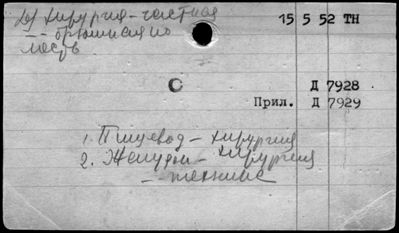 хирургия - частная 15 5 52 ТН
-- брюшная по
лость
С
Д 7928
Прил. Д 7929
1. Пищевод - хирургия
2. Желудок - хирургия
-- техника